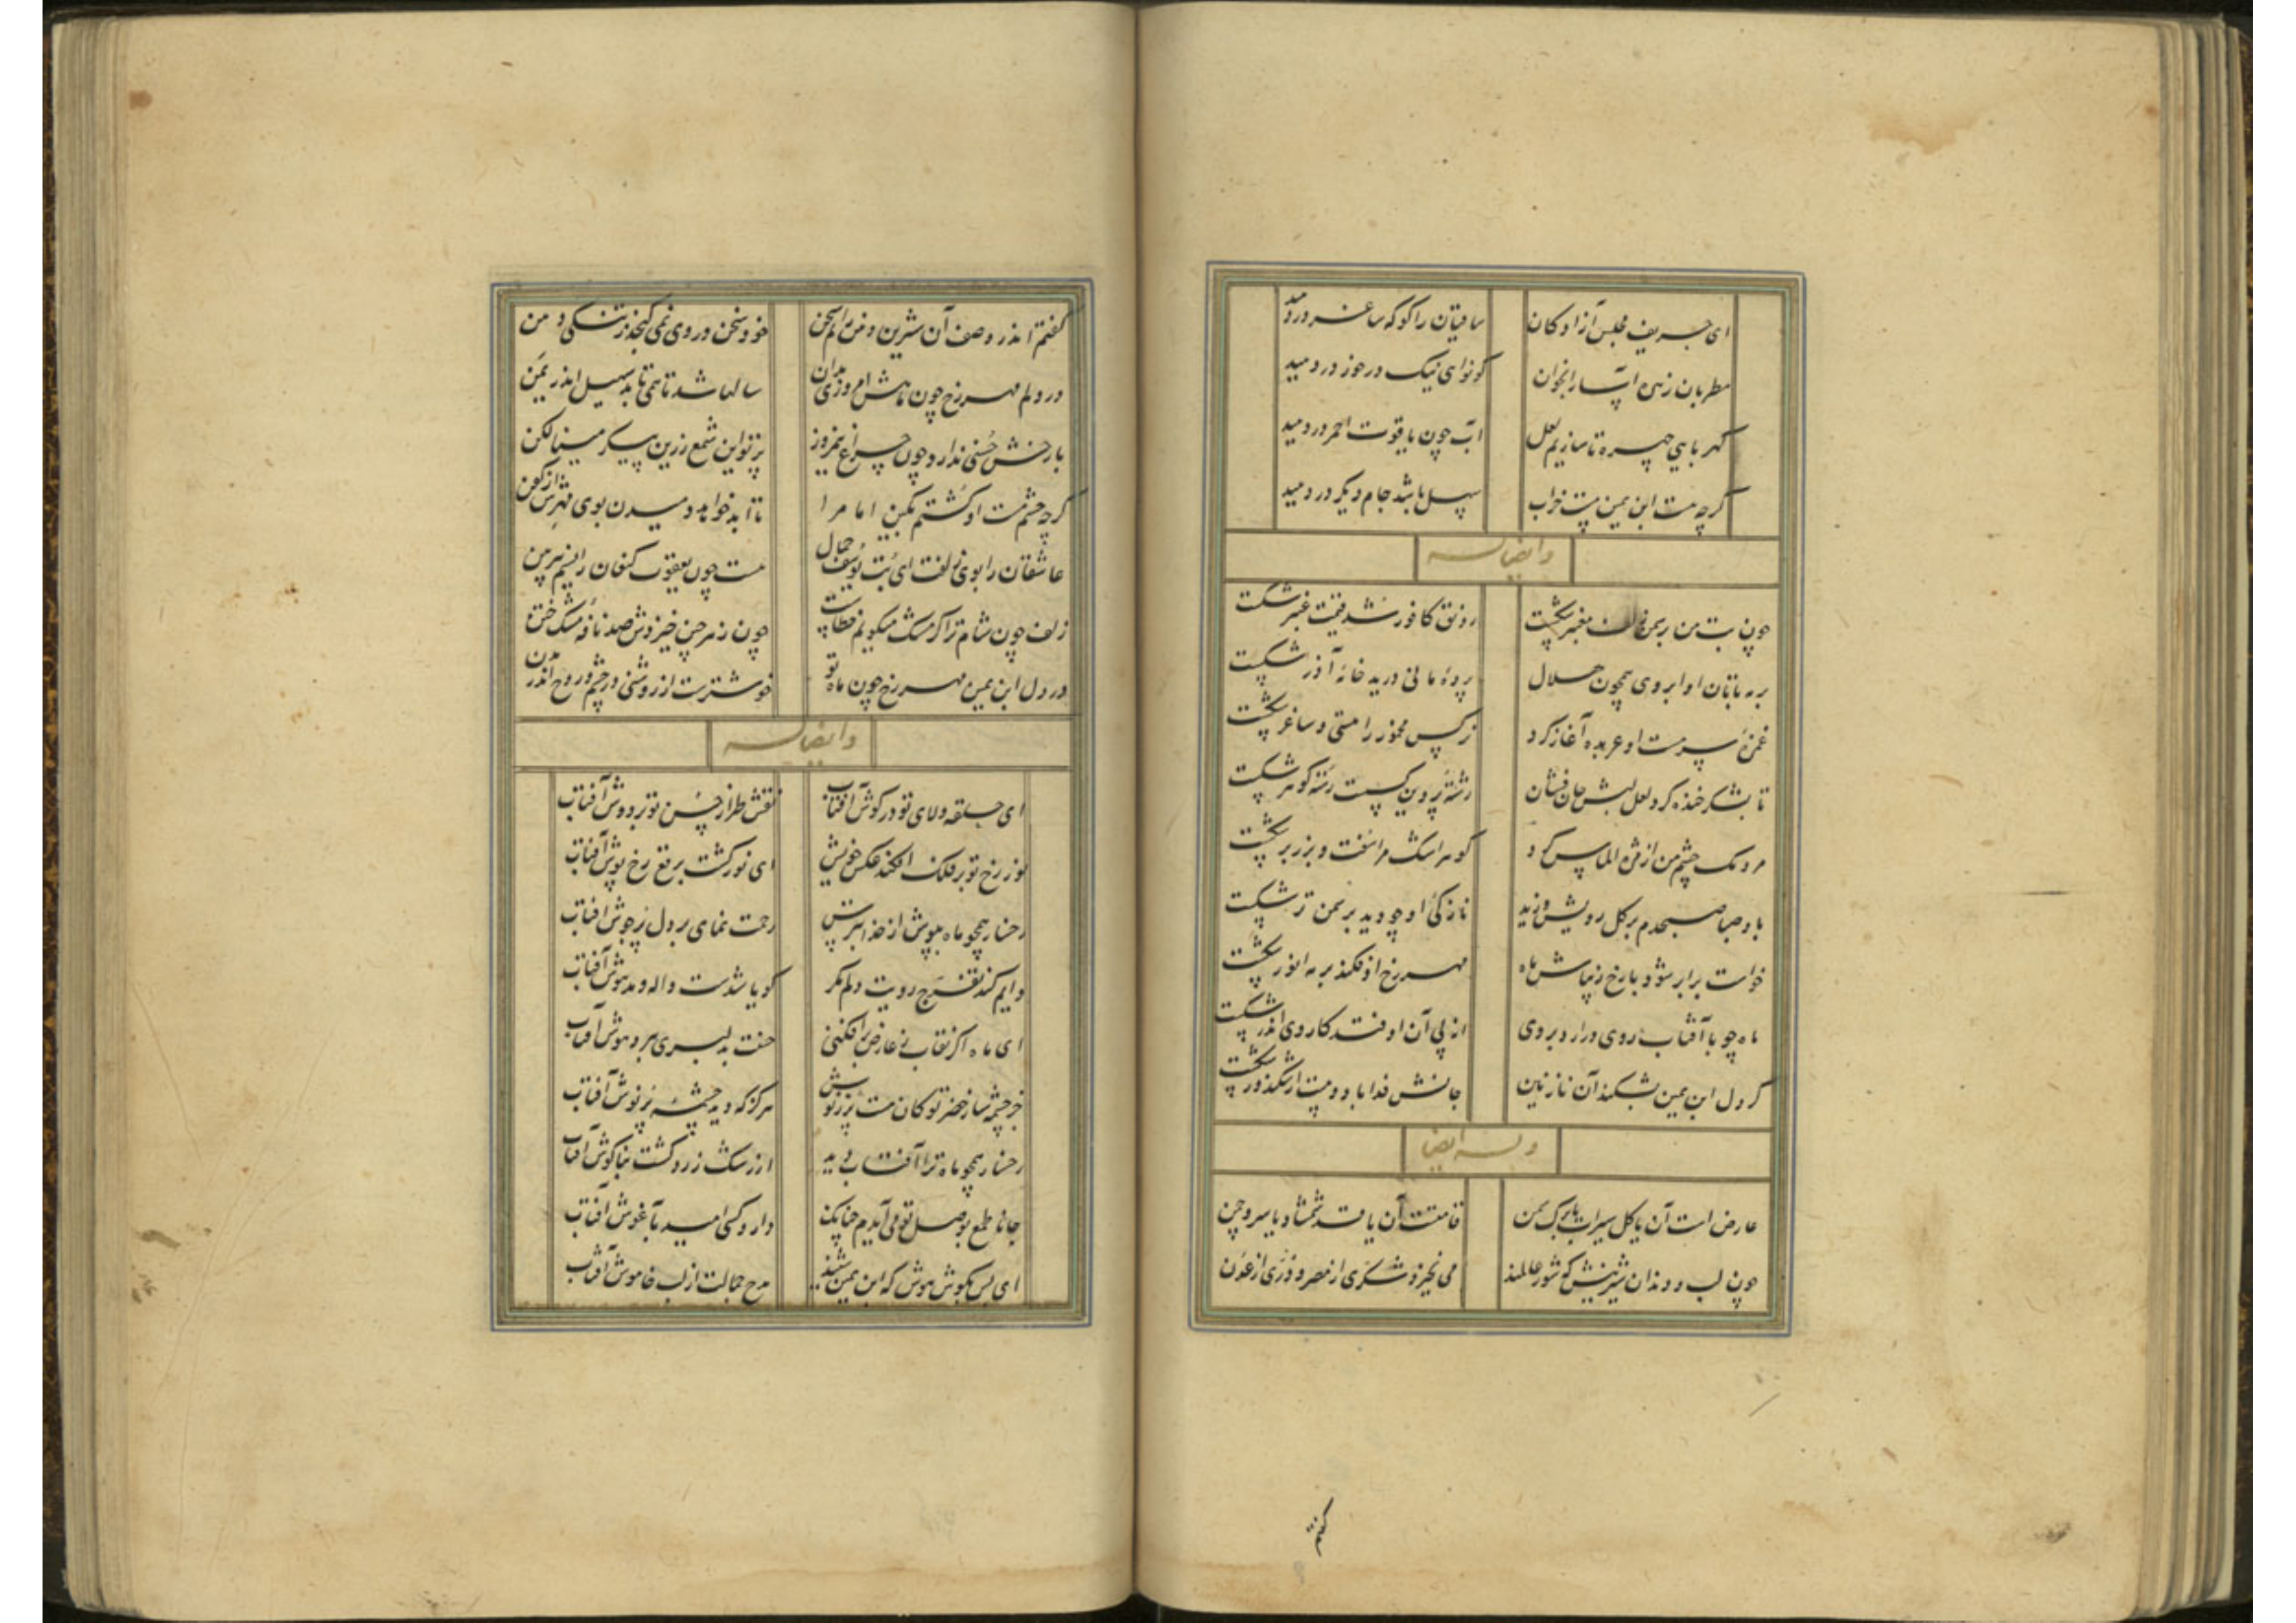 ای حریف مجلس آزادکان ساقیان را کو که ساغر در دمید
مطربان زهره آسا را بخوان کو نوای نیک در خور در دمید
کهربایی چهره تا سازیم لعل آب چون یاقوت احمر در دمید
کرچه مست ابن یمین پست خراب سهل باشد جام دیکر در دمید
وایضاله
چون بت من بر سمن زلف معنبر شکست رونق کافور شد قیمت عنبر شکست
بر مه تابان او ابروی همچون هلال پردهٔ مانی درید خانهٔ آذر شکست
غمزهٔ سرمست او عربده آغاز کرد نرکس مخمور را مستی و ساغر شکست
تا بشکر خنده کرد لعل لبش جان فشان رشتهٔ پروین کسست رشتهٔ کوهر شکست
مردمک چشم من از مژه الماس کرد کوهر اشک مرا سفت و بزر بر شکست
باد صبا صبحدم بر کل رویش وزید نازکی او چو دید بر سمن تر شکست
خواست برابر شود با رخ زیباش ماه مهر رخ او فکند بر مه انور شکست
ماه چو با آفتاب روی در آرد بروی از پی آن اوفتد کار وی اندر شکست
کر دل ابن یمین بشکند آن نازنین جانش فدا باد دوست ار شکند ور شکست
وله ایضا
عارض است آن یا کل سیراب یا برک سمن قامتست آن یا قد شمشاد یا سرو چمن
چون لب و دندان شیرینش که شور عالمند می نخیزد شکری از مصر و دری از عدن
کفتم
کفتم اندر وصف آن شیرین دهن رانم سخن خود سخن در وی نمی کنجد ز تنکی دهن
در دلم مهر رخ چون ماهش امروزی مدان سالها شد تا همی تابد سهیل اندر یمن
با رخش حسنی ندارد چون چراغ نیمروز پرتو این شمع زرین پیکر مینا لکن
کرچه چشم مست او کشتم بکین اما مرا تا ابد خواهد دمیدن بوی مهرش از کفن
عاشقان را بوی زلفت ای بت یوسف جمال هست چون یعقوب کنعان را نسیم پیرهن
زلف چون شام ترا کر مشک میکویم خطاست چون ز هر چین خیزدش صد نافهٔ مشک ختن
در دل ابن یمین مهر رخ چون ماه تو خوشترست از روشنی در چشم و روح اندر بدن
وایضاله
ای حلقه ولای تو در کوش آفتاب نقش طراز حسن تو بر دوش آفتاب
نور رخ تو بر فلک افکند عکس خویش ای نور کشت برقع رخ پوش آفتاب
رخسار همچو ماه بپوش از خدا بترس رحمت نمای بر دل پرجوش آفتاب
دایم کند تفرج رویت دلم مکر کویا شدست واله و مدهوش آفتاب
ای ماه اکر نقاب ز عارض بر افکنی حسنت بدلبری ببرد هوش آفتاب
جز چشمه سار خضر تو کان هست پر ز نوش هرکز که دید چشمهٔ پر نوش آفتاب
رخسار همچو ماه ترا آفتاب دید از رشک زرد کشت بناکوش آفتاب
جانا طمع بوصل تو می آیدم چنانک دارد کسی امید بآغوش آفتاب
ای بس بکوش هوش که ابن یمین شنید مدح جمالت از لب خاموش آفتاب